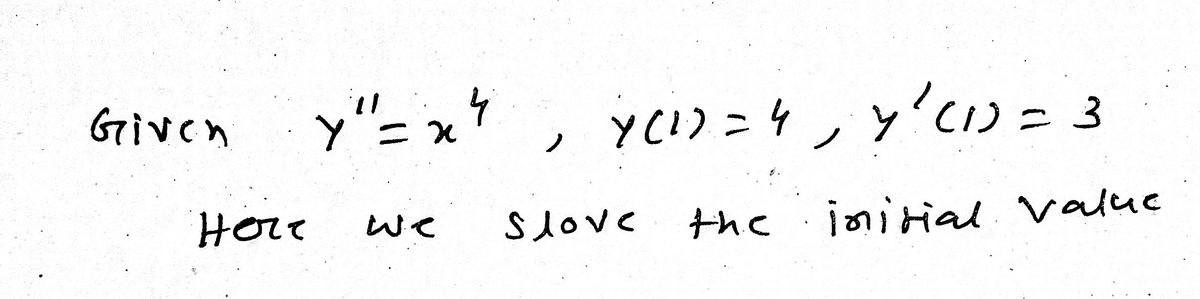 Given y''=x⁴ , y(1)=4, y'(1)=3
Here we slove the initial value